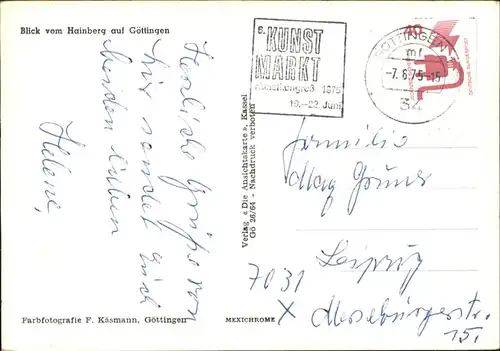 Blick vom Hainberg auf Göttingen
6. KUNST
MARKT
Kunstkongreß 1975
19.–22. Juni
GÖTTINGEN 1
mf
-7.6.75-15
34
40
DEUTSCHE BUNDESPOST
Herzliche Grüße von
hier sendet Euch
beiden lieben
Helene,
Verlag «Die Ansichtskarte», Kassel
Gö 26/64 - Nachdruck verboten
Familie
Max Grüner
7031 Leipzig
X Merseburgerstr.
15.
Farbfotografie F. Käsmann, Göttingen
MEXICHROME